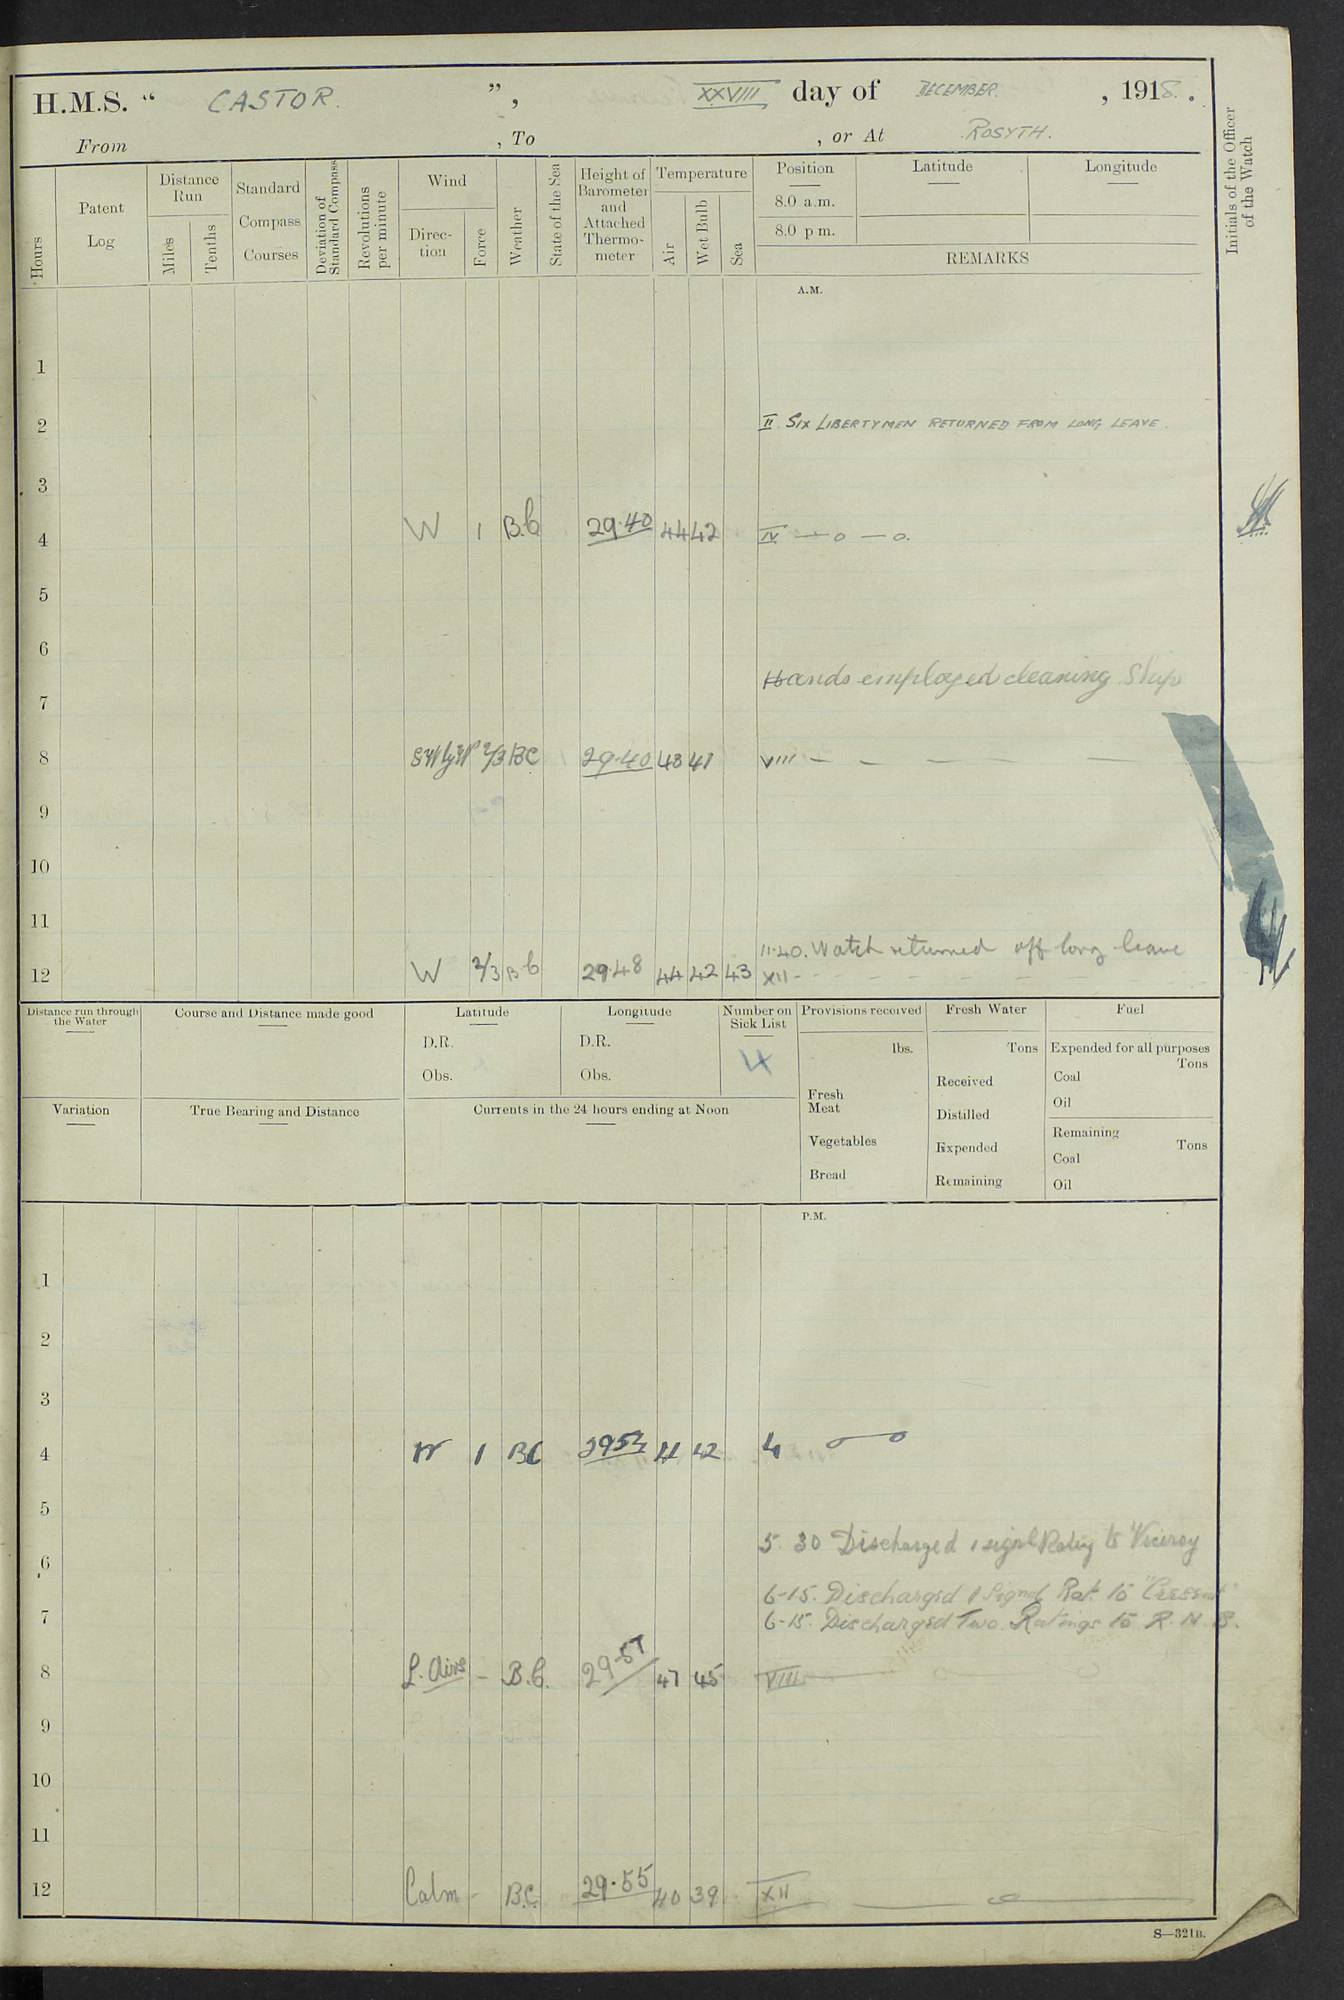 H.M.S. “ CASTOR. ”, XXVIII day of DECEMBER. , 1918.
From , To , or At ROSYTH.
Hours
Patent Log
Distance Run
Miles
Tenths
Standard Compass Courses
Deviation of Standard Compass
Revolutions per minute
Wind
Direction
Force
Weather
State of the Sea
Height of Barometer and Attached Thermometer
Temperature
Air
Wet Bulb
Sea
Position
8.0 a.m.
8.0 p m.
Latitude
Longitude
REMARKS
Initials of the Officer of the Watch
A.M.
1
2 II. SIX LIBERTYMEN RETURNED FROM LONG LEAVE.
3
4 W 1 B.C 29.40 44 42 IV — o — o.
5
6
Hands employed cleaning Ship
7
8 2/3 BC 29.40 43 41 VIII — — — — —
9
10
11
11.40. Watch returned off long leave
12 W 2/3 B C 29.48 44 42 43 XII - - - - -
Distance run through the Water
Course and Distance made good
Latitude
D.R.
Obs.
Longitude
D.R.
Obs.
Number on Sick List
4
Provisions received
lbs.
Fresh Meat
Vegetables
Bread
Fresh Water
Tons
Received
Distilled
Expended
Remaining
Fuel
Expended for all purposes
Tons
Coal
Oil
Remaining
Tons
Coal
Oil
Variation
True Bearing and Distance
Currents in the 24 hours ending at Noon
P.M.
1
2
3
4 W 1 BC 42 4 o—o
5
5.30 Discharged 1 signl Rating to Viceroy
6
6-15. Discharged 1 Signal Rat. to
7
6-15. Discharged Two Ratings to R.N.B.
8 L. Airs - B.C. 29.57 47 45 VIII
9
10
11
12 Calm - B.C. 29.55 40 39 XII
S—321B.